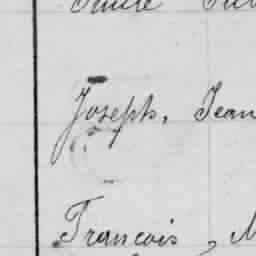 Joseph, Jean
François, M